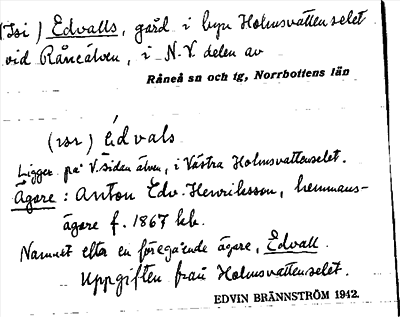 (Isi) Edvalls, gård i byn Holmsvattenselet
vid Råneälven, i N.V. delen av
Råneå sn och tg, Norrbottens län
(isi) édvals
Ligger på V. sidan älven, i Västra Holmsvattenselet.
Ägare: Anton Edv. Henriksson, hemmans-
ägare f. 1867
Namnet efter en föregående ägare, Edvall.
Uppgiften från Holmsvattenselet.
EDVIN BRÄNNSTRÖM 1942.